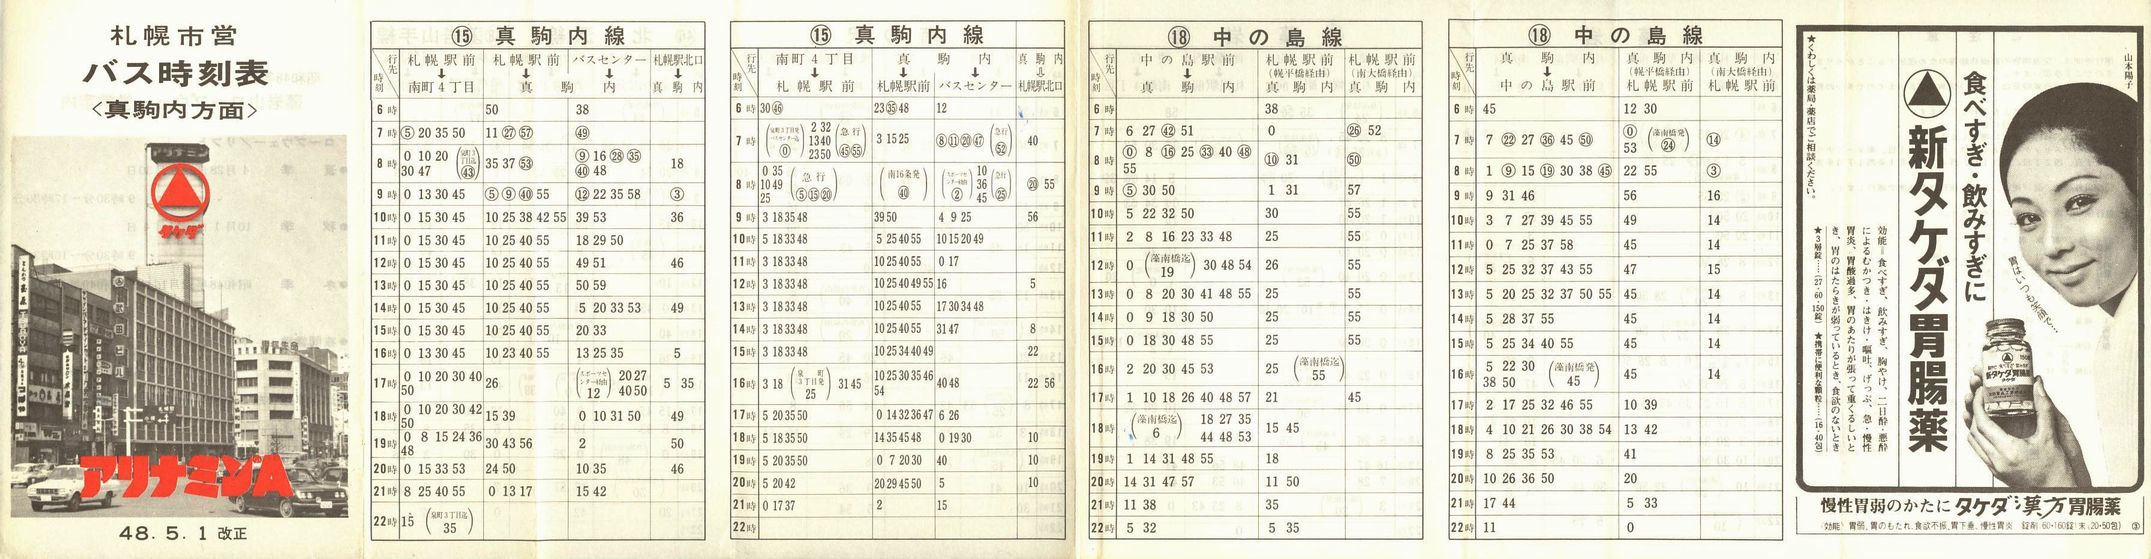 札幌市営
バス時刻表
<真駒内方面>
タケダ
アリナミンA
48.5.1改正
⑮ 真駒内線
行先 時刻 札幌駅前→南町4丁目 札幌駅前→真駒内 バスセンター→真駒内 札幌駅北口→真駒内
6時 50 38
7時 ⑤ 20 35 50 11 ㉗ 57 ㊾
8時 0 10 20 30 47 (南町3丁目迄 ㊸) 35 37 53 ⑨ 16 ㉘ ㉟ ㊵ 48 18
9時 0 13 30 45 ⑤ ⑨ ㊵ 55 ⑫ 22 35 58 ③
10時 0 15 30 45 10 25 38 42 55 39 53 36
11時 0 15 30 45 10 25 40 55 18 29 50
12時 0 15 30 45 10 25 40 55 49 51 46
13時 0 15 30 45 10 25 40 55 50 59
14時 0 15 30 45 10 25 40 55 5 20 33 53 49
15時 0 15 30 45 10 25 40 55 20 33
16時 0 13 30 45 10 23 40 55 13 25 35 5
17時 0 10 20 30 40 50 26 (スポーツセンター経由 12) 20 27 40 50 5 35
18時 0 10 20 30 42 50 15 39 0 10 31 50 49
19時 0 8 15 24 36 48 30 43 56 2 50
20時 0 15 33 53 24 50 10 35 46
21時 8 25 40 55 0 13 17 15 42
22時 15 (南町3丁目迄 35)
⑮ 真駒内線
行先 時刻 南町4丁目→札幌駅前 真駒内→札幌駅前 真駒内→バスセンター 真駒内→札幌駅北口
6時 30 ㊻ 23 ㉟ 48 12
7時 2 32 13 40 23 50 (急行 ㊺ 55) 3 15 25 ⑧ ⑪ ⑳ ㊼ (急行 52) 40
8時 0 35 10 49 25 (急行 ⑤ ⑮ ⑳) (南16条発 ㊵) (スポーツセンター経由 ②) 10 36 45 (急行 ㉕) ⑳ 55
9時 3 18 35 48 39 50 4 9 25 56
10時 5 18 33 48 5 25 40 55 10 15 20 49
11時 3 18 33 48 10 25 40 55 0 17
12時 3 18 33 48 10 25 40 49 55 16 5
13時 3 18 33 48 10 25 40 55 17 30 34 48
14時 3 18 33 48 10 25 40 55 31 47 8
15時 3 18 33 48 10 25 34 40 49 22
16時 3 18 (南町3丁目発 25) 31 45 10 25 30 35 46 54 40 48 22 56
17時 5 20 35 50 0 14 32 36 47 6 26
18時 5 18 35 50 14 35 45 48 0 19 30 10
19時 5 20 35 50 0 7 20 30 40 10
20時 5 20 42 20 29 45 50 5 10
21時 0 17 37 2 15
22時
⑱ 中の島線
行先 時刻 中の島駅前→真駒内 札幌駅前(幌平橋経由)→真駒内 札幌駅前(南大橋経由)→真駒内
6時 38
7時 6 27 ㊷ 51 0 ㉖ 52
8時 ⓪ 8 ⑯ 25 ㉝ 40 ㊽ 55 ⑩ 31 ㊿
9時 ⑤ 30 50 1 31 57
10時 5 22 32 50 30 55
11時 2 8 16 23 33 48 25 55
12時 0 (藻南橋迄 19) 30 48 54 26 55
13時 0 8 20 30 41 48 55 25 55
14時 0 9 18 30 50 25 55
15時 0 18 30 48 55 25 55
16時 2 20 30 45 53 25 (藻南橋迄 55)
17時 1 10 18 26 40 48 57 21 45
18時 (藻南橋迄 6) 18 27 35 44 48 53 15 45
19時 1 14 31 48 55 18
20時 14 31 47 57 11 50
21時 11 38 35
22時 5 32 5 35
⑱ 中の島線
行先 時刻 真駒内→中の島駅前 真駒内(幌平橋経由)→札幌駅前 真駒内(南大橋経由)→札幌駅前
6時 45 12 30
7時 7 ㉒ 27 ㊱ 45 ㊿ ⓪ 53 (藻南橋発 ㉔) ⑭
8時 1 ⑨ 15 ⑲ 30 38 ㊺ 22 55 ③
9時 9 31 46 56 16
10時 3 7 27 39 45 55 49 14
11時 0 7 25 37 58 45 14
12時 5 25 32 37 43 55 47 15
13時 5 20 25 32 37 50 55 45 14
14時 5 28 37 55 45 14
15時 5 25 34 40 55 45 14
16時 5 22 30 38 50 (藻南橋発 45) 45 14
17時 2 17 25 32 46 55 10 39
18時 4 10 21 26 30 38 54 13 42
19時 8 25 35 53 41
20時 10 26 36 50 20
21時 17 44 5 33
22時 11 0
山本陽子
食べすぎ・飲みすぎに
新タケダ胃腸薬
胃はいつも笑顔で…
効能＝食べすぎ、飲みすぎ、胸やけ、二日酔・悪酔
によるむかつき・はきけ・嘔吐、げっぷ、急・慢性
胃炎、胃酸過多、胃のあたりが張って重くるしいと
き、胃のはたらきが弱っているとき、食欲のないとき
★3層錠……(27・60・150錠) ★携帯に便利な顆粒……(16・40包)
★くわしくは薬局・薬店でご相談ください。
新タケダ胃腸薬
慢性胃弱のかたに タケダ漢方胃腸薬
〈効能〉胃弱、胃のもたれ、食欲不振、胃下垂、慢性胃炎 錠剤(60・160錠) 末(20・50包) ③